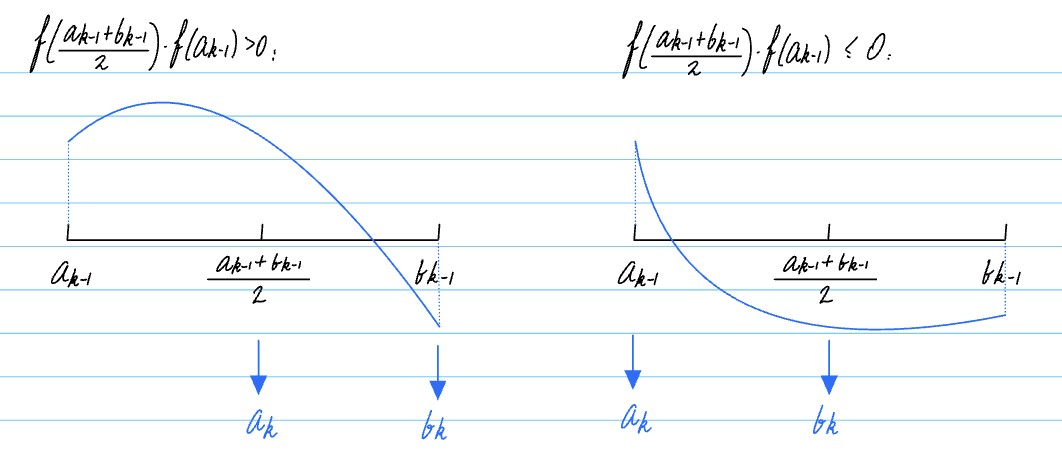 f((aₖ₋₁+bₖ₋₁)/2)·f(aₖ₋₁)>0:
aₖ₋₁ (aₖ₋₁+bₖ₋₁)/2 bₖ₋₁
aₖ bₖ
f((aₖ₋₁+bₖ₋₁)/2)·f(aₖ₋₁) ≤ 0:
aₖ₋₁ (aₖ₋₁+bₖ₋₁)/2 bₖ₋₁
aₖ bₖ